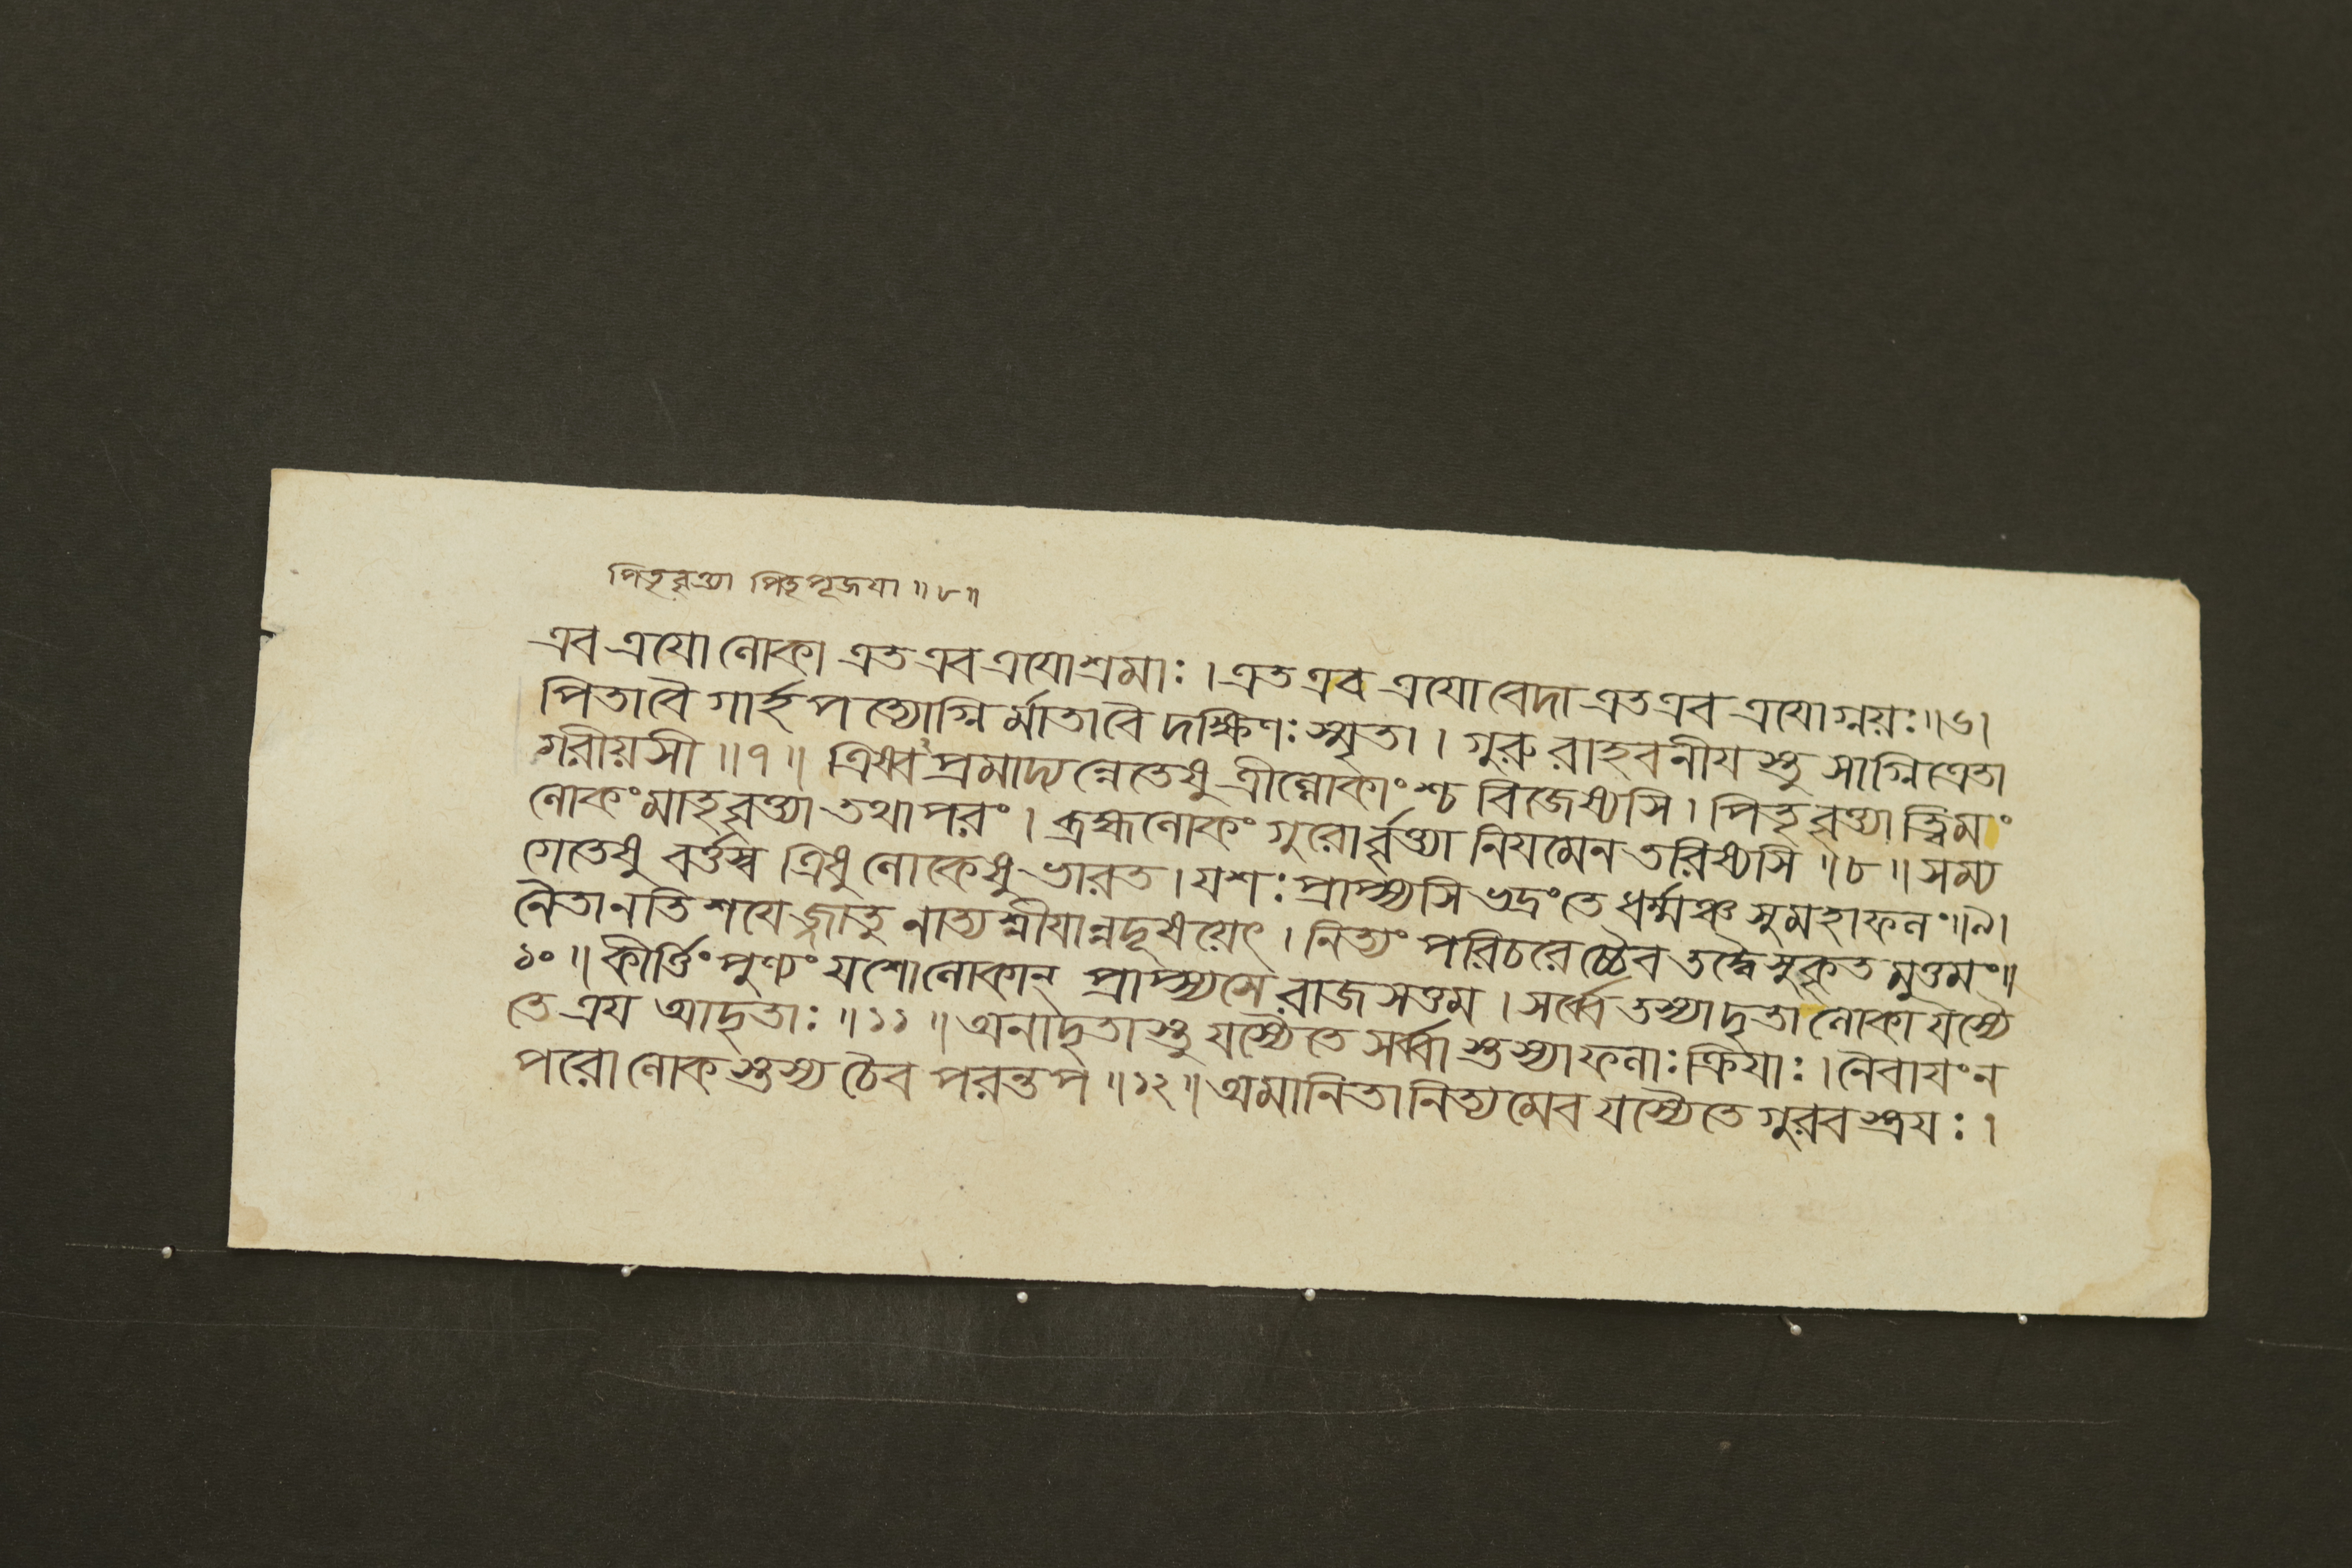 পিতৃবৃত্ত্যা পিতৃপূজযা ॥৮॥
এব ত্রযো লোকা এত এব ত্রযোশ্রমাঃ । এত এব ত্রযো বেদা এত এব ত্রযোগ্নয়ঃ ॥৬।
পিতাবৈ গার্হপত্যোগ্নির্মাতাবৈ দক্ষিণঃ স্মৃতা । গুরুরাহবনীযস্তু সাগ্নিত্রেতা
গরীয়সী ॥৭॥ ত্রিষ্বপ্রমাদ্যন্নেতেষু ত্রীল্লোকাংশ্চ বিজেষ্যসি । পিতৃবৃত্ত্যাত্ত্বিমং
লোকং মাতৃবৃত্ত্যা তথাপরং । ব্রহ্মলোকং গুরোর্ব্বৃত্ত্যা নিযমেন তরিষ্যসি ॥৮॥ সম্য
গেতেষু বর্ত্তস্ব ত্রিষু লোকেষু ভারত । যশঃ প্রাপ্স্যসি ভদ্রংতে ধর্ম্মঞ্চ সুমহাফলং ॥৯।
নৈতানতিশযেজ্জাতু নাত্যশ্নীযান্নদূষয়েৎ । নিত্যং পরিচরেচ্চৈব তদ্বৈ সুকৃতমুত্তমং ॥
১০॥ কীর্ত্তিং পুণ্যং যশোলোকান্ প্রাপ্স্যসে রাজসত্তম । সর্ব্বে তস্যাদৃতা লোকা যস্যৈ
তে ত্রয আদৃতাঃ ॥১১॥ অনাদৃতাস্তু যস্যৈতে সর্ব্বাস্তস্যাফলাঃ ক্রিযাঃ । নৈবাযংন
পরোলোকস্তস্য চৈব পরন্তপ ॥১২॥ অমানিতা নিত্যমেব যস্যৈতে গুরবস্ত্রযঃ ।